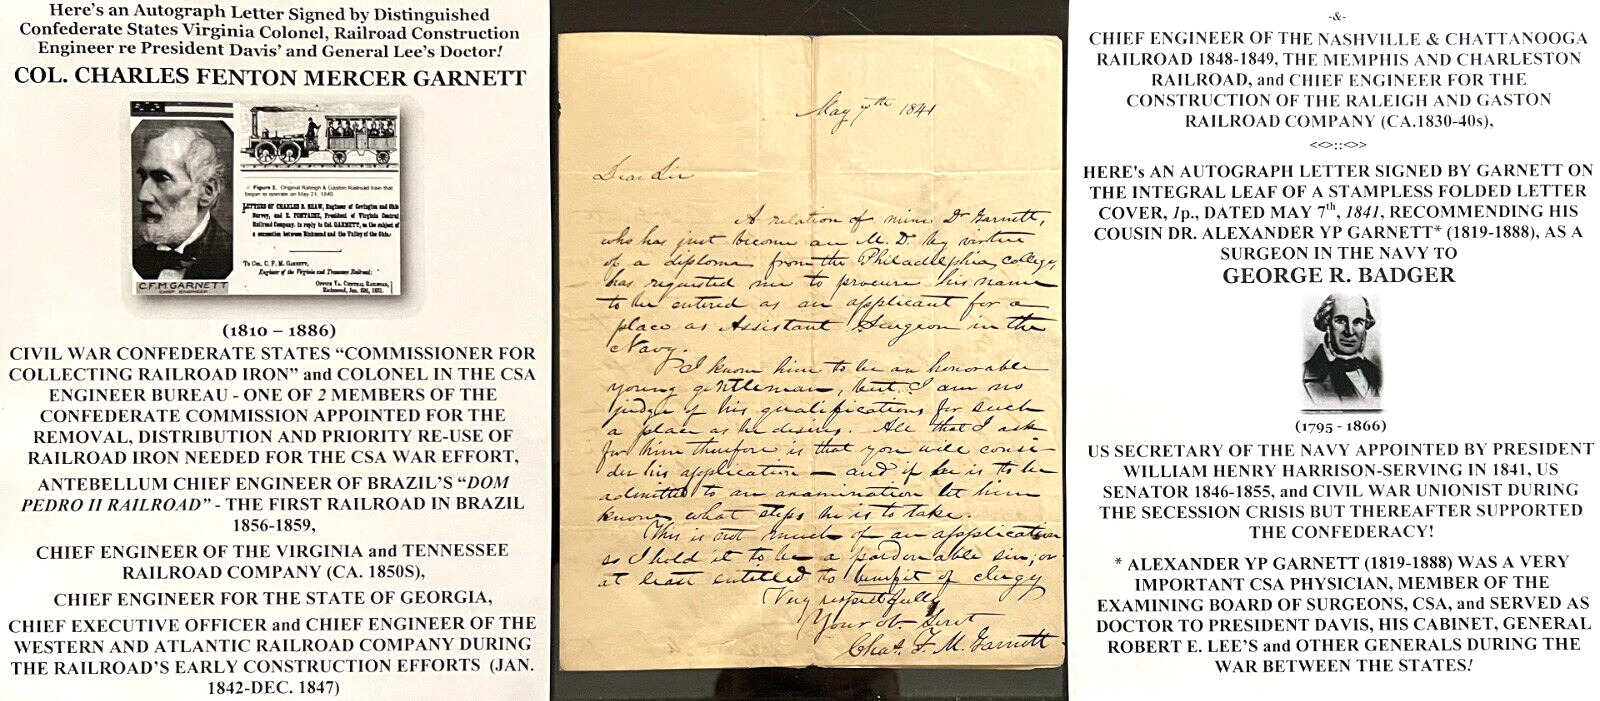 Here's an Autograph Letter Signed by Distinguished
Confederate States Virginia Colonel, Railroad Construction
Engineer re President Davis' and General Lee's Doctor!
COL. CHARLES FENTON MERCER GARNETT
Figure 2. Original Raleigh & Gaston Railroad train that
began to operate on May 21, 1840.
LETTERS OF CHARLES B. SHAW, Engineer of Covington and Ohio
Survey, and E. FONTAINE, President of Virginia Central
Railroad Company. in reply to Col. GARNETT, on the subject of
a connection between Richmond and the Valley of the Ohio.
To COL. C. F. M. GARNETT,
Engineer of the Virginia and Tennessee Railroad:
OFFICE VA. CENTRAL RAILROAD,
Richmond, Jan.
C.F.M GARNETT
CHIEF ENGINEER
(1810 – 1886)
CIVIL WAR CONFEDERATE STATES “COMMISSIONER FOR
COLLECTING RAILROAD IRON” and COLONEL IN THE CSA
ENGINEER BUREAU - ONE OF 2 MEMBERS OF THE
CONFEDERATE COMMISSION APPOINTED FOR THE
REMOVAL, DISTRIBUTION AND PRIORITY RE-USE OF
RAILROAD IRON NEEDED FOR THE CSA WAR EFFORT,
ANTEBELLUM CHIEF ENGINEER OF BRAZIL'S “DOM
PEDRO II RAILROAD” - THE FIRST RAILROAD IN BRAZIL
1856-1859,
CHIEF ENGINEER OF THE VIRGINIA and TENNESSEE
RAILROAD COMPANY (CA. 1850S),
CHIEF ENGINEER FOR THE STATE OF GEORGIA,
CHIEF EXECUTIVE OFFICER and CHIEF ENGINEER OF THE
WESTERN AND ATLANTIC RAILROAD COMPANY DURING
THE RAILROAD'S EARLY CONSTRUCTION EFFORTS (JAN.
1842-DEC. 1847)
May 7th 1841
Dear Sir
A relation of mine Dr Garnett,
who has just become an M. D. by virtue
of a diploma from the Philadelphia college,
has requested me to procure his name
to be entered as an applicant for a
place as Assistant Surgeon in the
Navy.
I know him to be an honorable
young gentleman, but I am no
judge of his qualifications for such
a place as he desires. All that I ask
for him therefore is that you will consi-
der his application – and if he is to be
admitted to an examination let him
know what steps he is to take.
This is not much of an application
so I hold it to be a pardonable sin, or
at least entitled to benefit of clergy
Very respectfully
Your ob. Servt
Chas. F. M. Garnett
-&-
CHIEF ENGINEER OF THE NASHVILLE & CHATTANOOGA
RAILROAD 1848-1849, THE MEMPHIS AND CHARLESTON
RAILROAD, and CHIEF ENGINEER FOR THE
CONSTRUCTION OF THE RALEIGH AND GASTON
RAILROAD COMPANY (CA.1830-40s),
<<>::<>>
HERE's AN AUTOGRAPH LETTER SIGNED BY GARNETT ON
THE INTEGRAL LEAF OF A STAMPLESS FOLDED LETTER
COVER, 1p., DATED MAY 7th, 1841, RECOMMENDING HIS
COUSIN DR. ALEXANDER YP GARNETT* (1819-1888), AS A
SURGEON IN THE NAVY TO
GEORGE R. BADGER
(1795 - 1866)
US SECRETARY OF THE NAVY APPOINTED BY PRESIDENT
WILLIAM HENRY HARRISON-SERVING IN 1841, US
SENATOR 1846-1855, and CIVIL WAR UNIONIST DURING
THE SECESSION CRISIS BUT THEREAFTER SUPPORTED
THE CONFEDERACY!
* ALEXANDER YP GARNETT (1819-1888) WAS A VERY
IMPORTANT CSA PHYSICIAN, MEMBER OF THE
EXAMINING BOARD OF SURGEONS, CSA, and SERVED AS
DOCTOR TO PRESIDENT DAVIS, HIS CABINET, GENERAL
ROBERT E. LEE's and OTHER GENERALS DURING THE
WAR BETWEEN THE STATES!